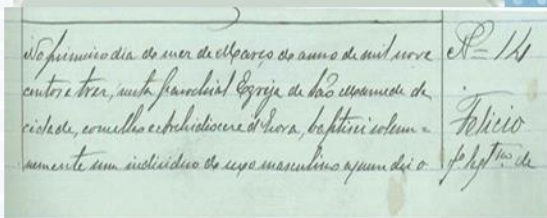 No primeiro dia do mez de Março do anno de mil nove
centos e trez, nesta parochial Egreja de São Mamede da
cidade, concelho e archidiocese d'Evora, baptisei solem=
nemente um individuo do sexo masculino a quem dei o
Nº 14
Felicio
fº legtmo de